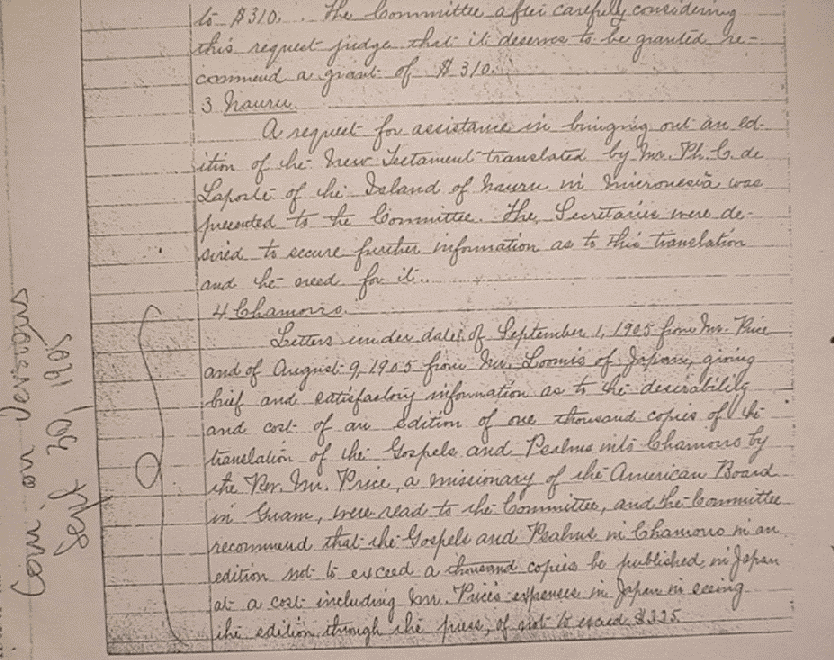 to $310. The Committee after carefully considering
this request judge that it deserves to be granted re-
commend a grant of $310.
3 Nauru
A request for assistance in bringing out an ed-
ition of the New Testament translated by Mr. Ph. C. de
Laporte of the Island of Nauru in Micronesia was
presented to the Committee. The Secretaries were de-
sired to secure further information as to this translation
and the need for it.
4 Chamorro.
Letters under dates of September 1, 1905 from Mr. Price
and of August 9, 1905 from Mr. Loomis of Japan, giving
brief and satisfactory information as to the desirability
and cost of an edition of one thousand copies of the
translation of the Gospels and Psalms into Chamorro by
the Rev. Mr. Price, a missionary of the American Board
in Guam, were read to the Committee, and the Committee
recommend that the Gospels and Psalms in Chamorro in an
edition not to exceed a thousand copies be published in Japan
at a cost including Mr. Price's expenses in Japan in seeing
the edition through the press, of not to exceed $325
Com. on Versions
Sept 30, 1905